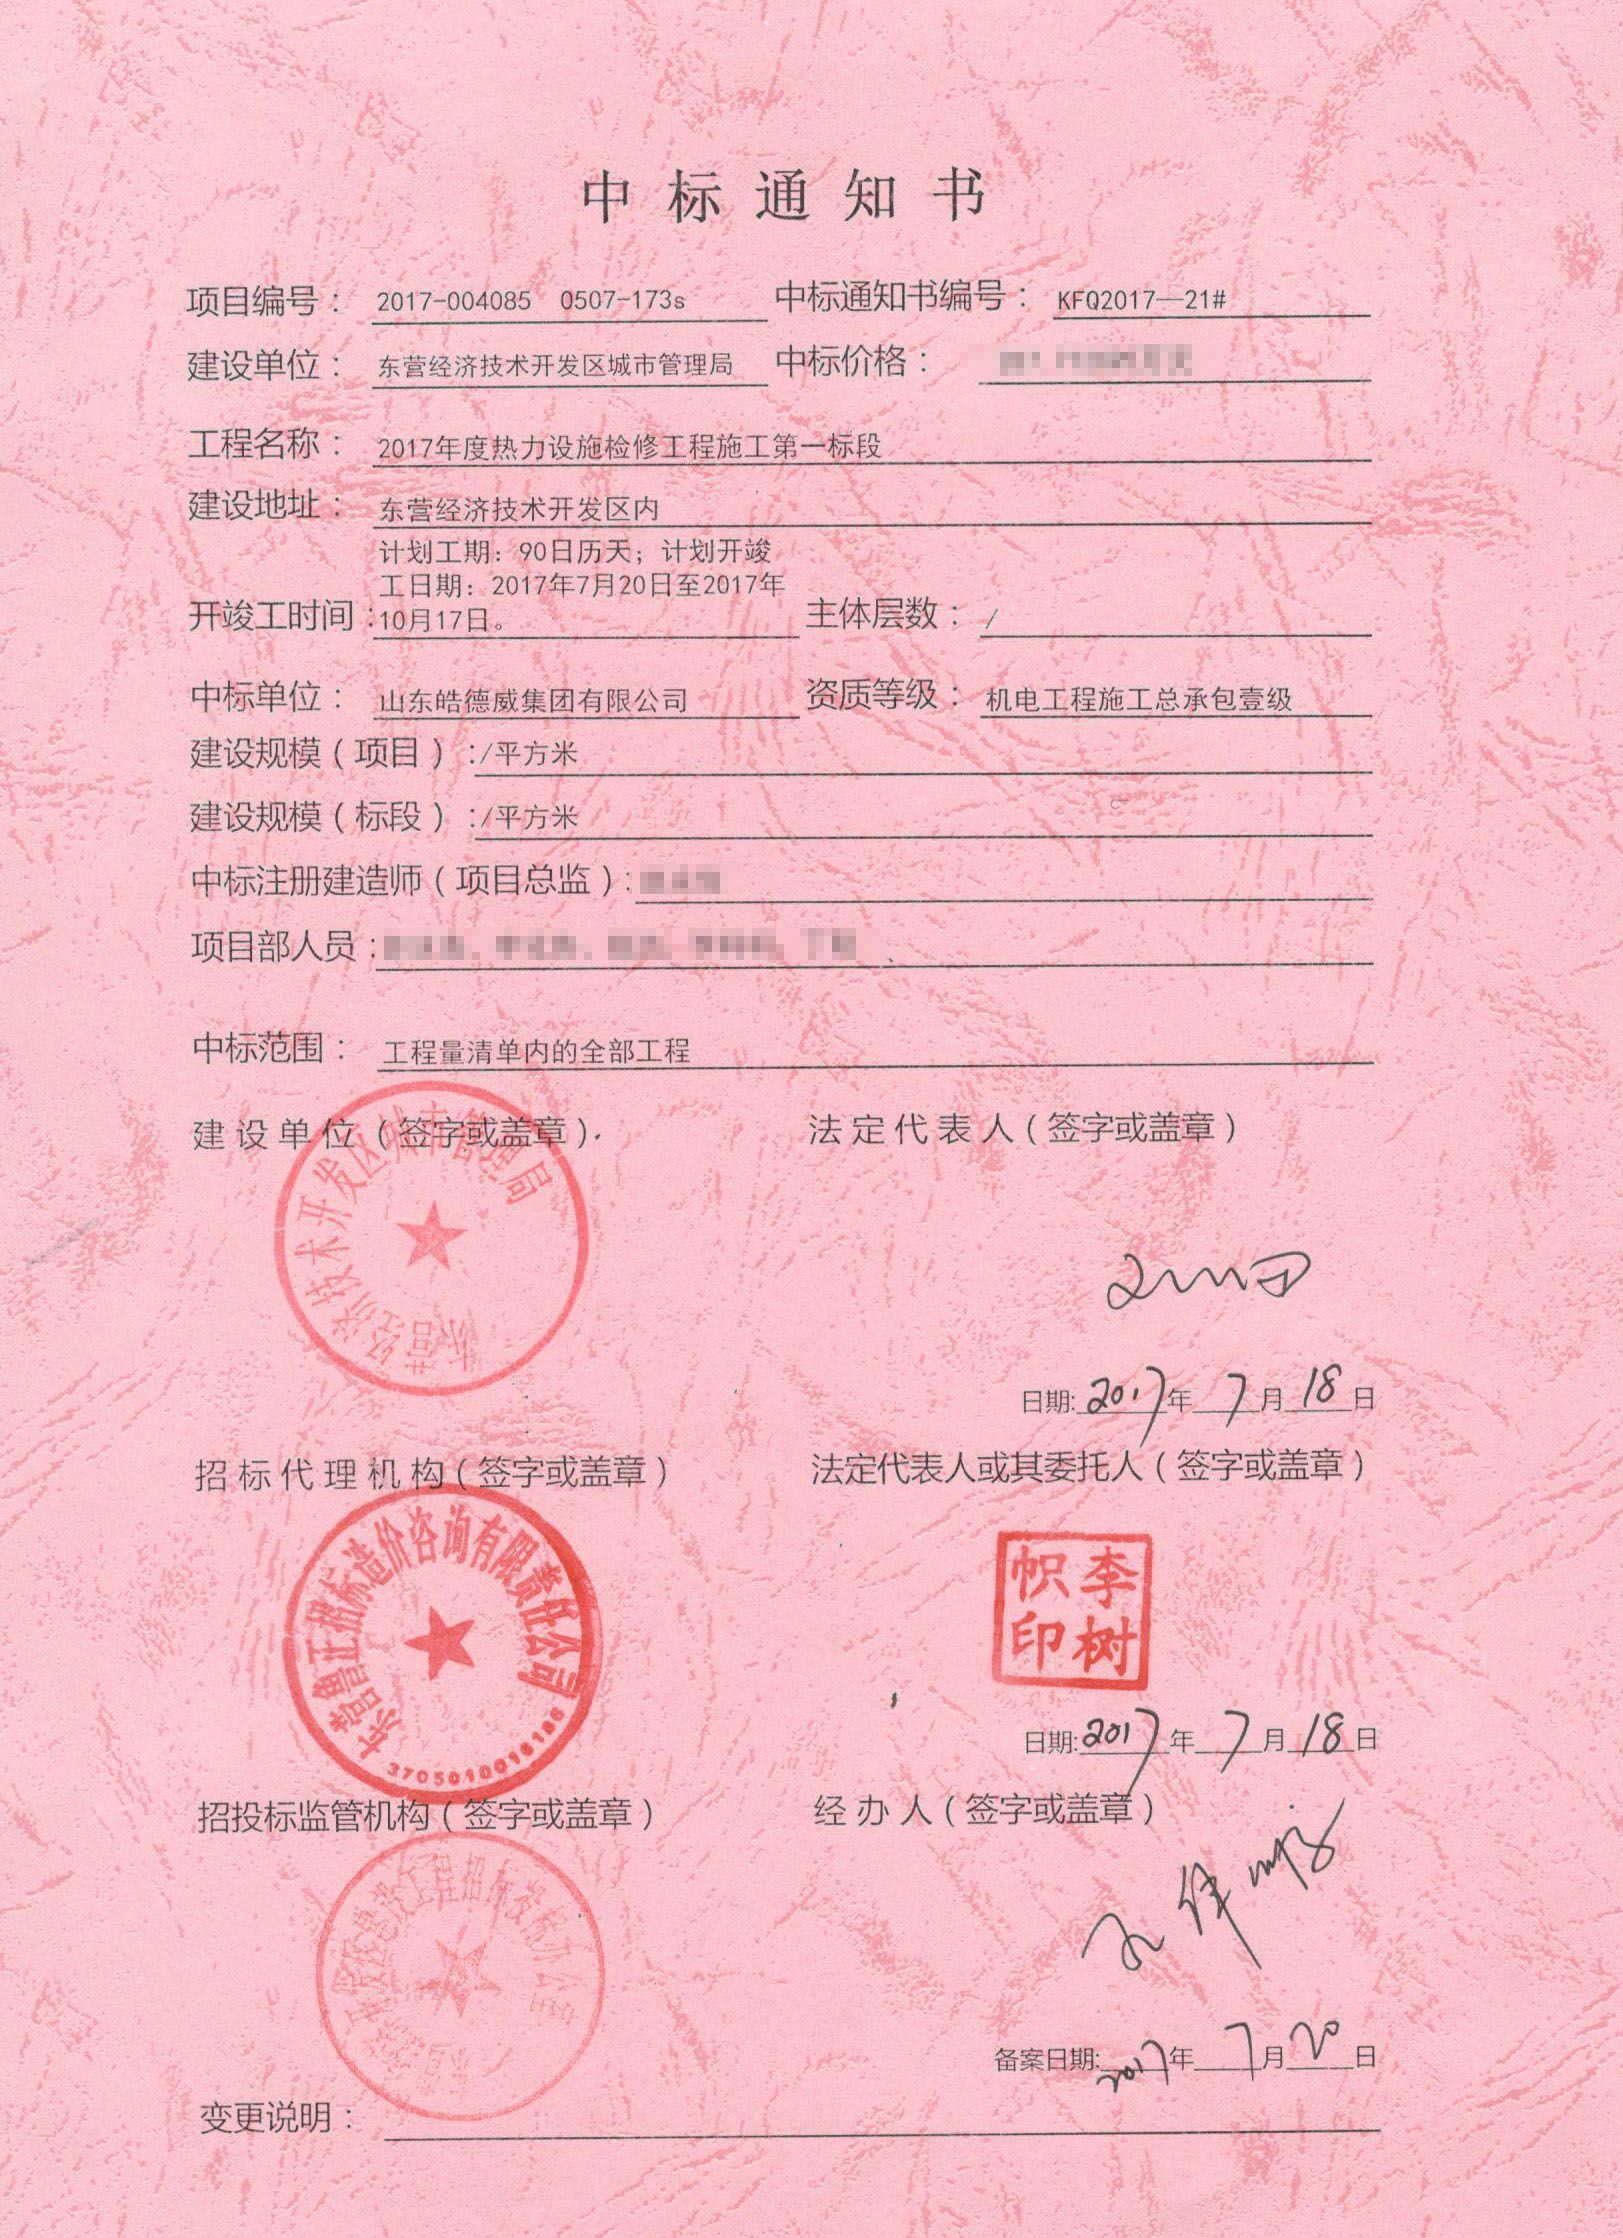 中标通知书
项目编号： 2017-004085 0507-173s 中标通知书编号： KFQ2017—21#
建设单位： 东营经济技术开发区城市管理局 中标价格：
工程名称： 2017年度热力设施检修工程施工第一标段
建设地址： 东营经济技术开发区内
计划工期：90日历天；计划开竣
工日期：2017年7月20日至2017年
开竣工时间：10月17日。 主体层数： /
中标单位： 山东皓德威集团有限公司 资质等级： 机电工程施工总承包壹级
建设规模（项目）：/平方米
建设规模（标段）：/平方米
中标注册建造师（项目总监）：
项目部人员：
中标范围： 工程量清单内的全部工程
建设单位（签字或盖章） 法定代表人（签字或盖章）
东营经济技术开发区城市管理局
日期:2017年7月18日
招标代理机构（签字或盖章） 法定代表人或其委托人（签字或盖章）
东营鲁正招标造价咨询有限责任公司
李树帜印
日期:2017年7月18日
招投标监管机构（签字或盖章） 经办人（签字或盖章）
开发区建设工程招标投标办公室
备案日期:2017年7月20日
变更说明：